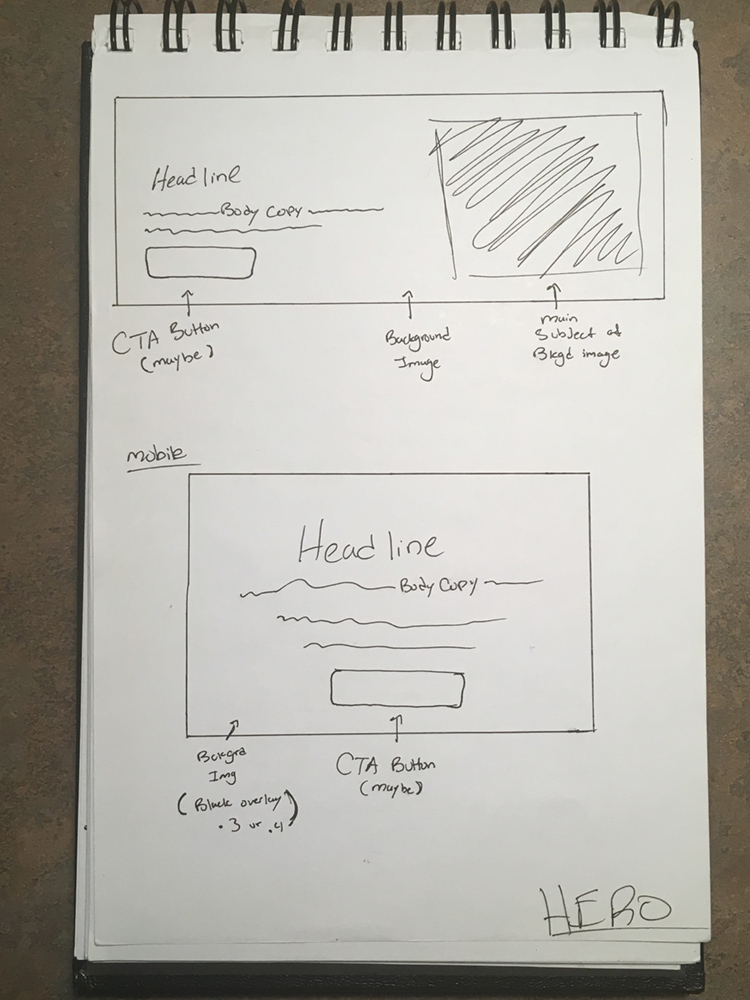 Headline
Body Copy
CTA Button
(maybe)
Background
Image
main
Subject of
Bkgd image
mobile
Headline
Body Copy
Img
(Black overlay)
.3 or .4
CTA Button
(maybe)
HERO